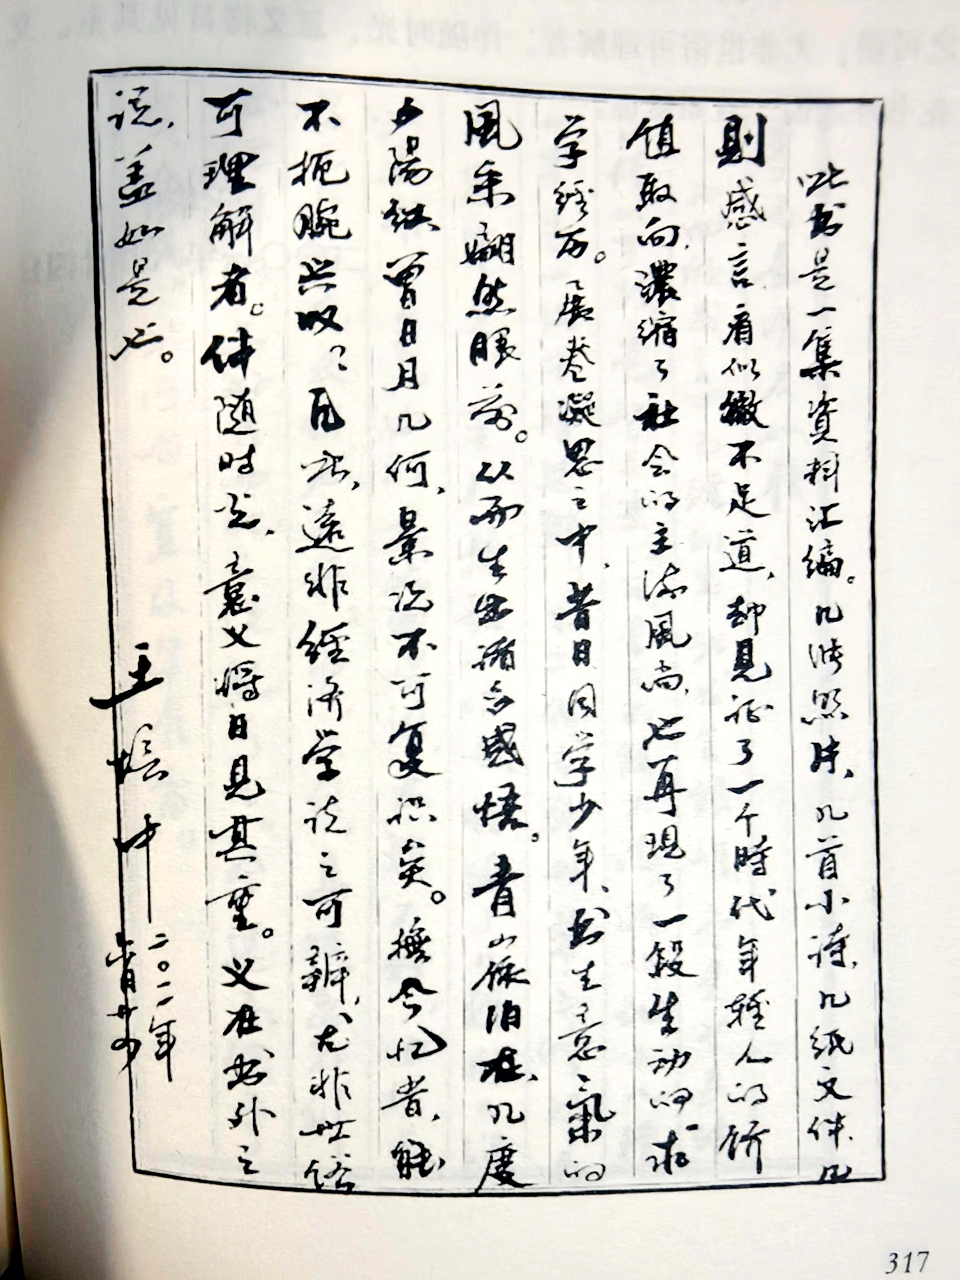 此书是一集资料汇编。几张照片、几首小诗、几纸文件、几
则感言，看似微不足道，却见证了一个時代年轻人的价
值取向，濃缩了社会的主流风尚，也再现了一段生动的求
学经历。展卷凝思之中，昔日同学少年、书生意氣的
風采翩然眼前。从而生出诸多感悟。青山依旧在，几度
夕陽红。曾日月几何，景况不可复识矣。抚今忆昔，能
不扼腕兴叹？凡此，远非经济学说之可辩，尤非世俗
可理解者。伴随时光，意义将日见其重。义在书外之
说，盖如是也。
王培中
二〇一一年